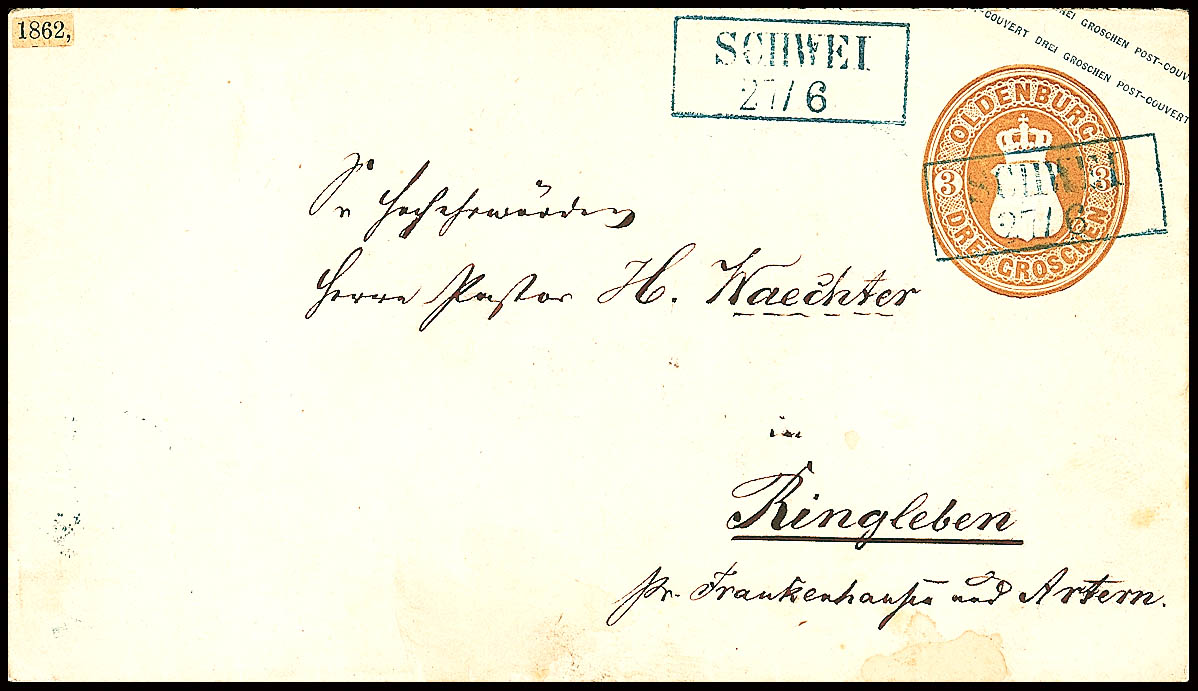 1862,
SCHWEI
27/6
REI GROSCHEN POST-COUV
-COUVERT DREI GROSCHEN POST-COUVERT
OLDENBURG
3 3
DREI GROSCHEN
SCHWEI
27/6
Sr Hochehrwürden
Herrn Pastor H. Waechter
in
Ringleben
pr. Frankenhausen und Artern.